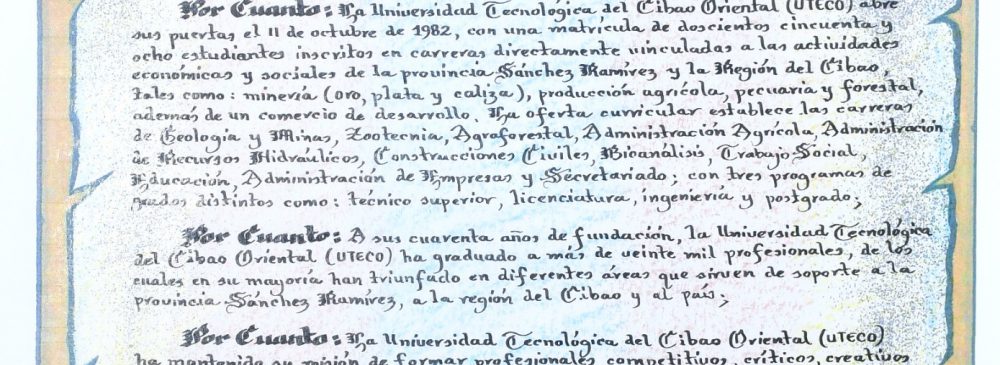 Por Cuanto: La Universidad Tecnológica del Cibao Oriental (UTECO) abre
sus puertas el 11 de octubre de 1982, con una matrícula de doscientos cincuenta y
ocho estudiantes inscritos en carreras directamente vinculadas a las actividades
económicas y sociales de la provincia Sánchez Ramírez y la Región del Cibao,
tales como: minería (oro, plata y caliza), producción agrícola, pecuaria y forestal,
además de un comercio de desarrollo. Su oferta curricular establece las carreras
de Geología y Minas, Zootecnia, Agroforestal, Administración Agrícola, Administración
de Recursos Hidráulicos, Construcciones Civiles, Bioanálisis, Trabajo Social,
Educación, Administración de Empresas y Secretariado; con tres programas de
grados distintos como: técnico superior, licenciatura, ingeniería y postgrado;
Por Cuanto: A sus cuarenta años de fundación, la Universidad Tecnológica
del Cibao Oriental (UTECO) ha graduado a más de veinte mil profesionales, de los
cuales en su mayoría han triunfado en diferentes áreas que sirven de soporte a la
provincia Sánchez Ramírez, a la región del Cibao y al país;
Por Cuanto: La Universidad Tecnológica del Cibao Oriental (UTECO)
ha mantenido su misión de formar profesionales competitivos, críticos, creativos